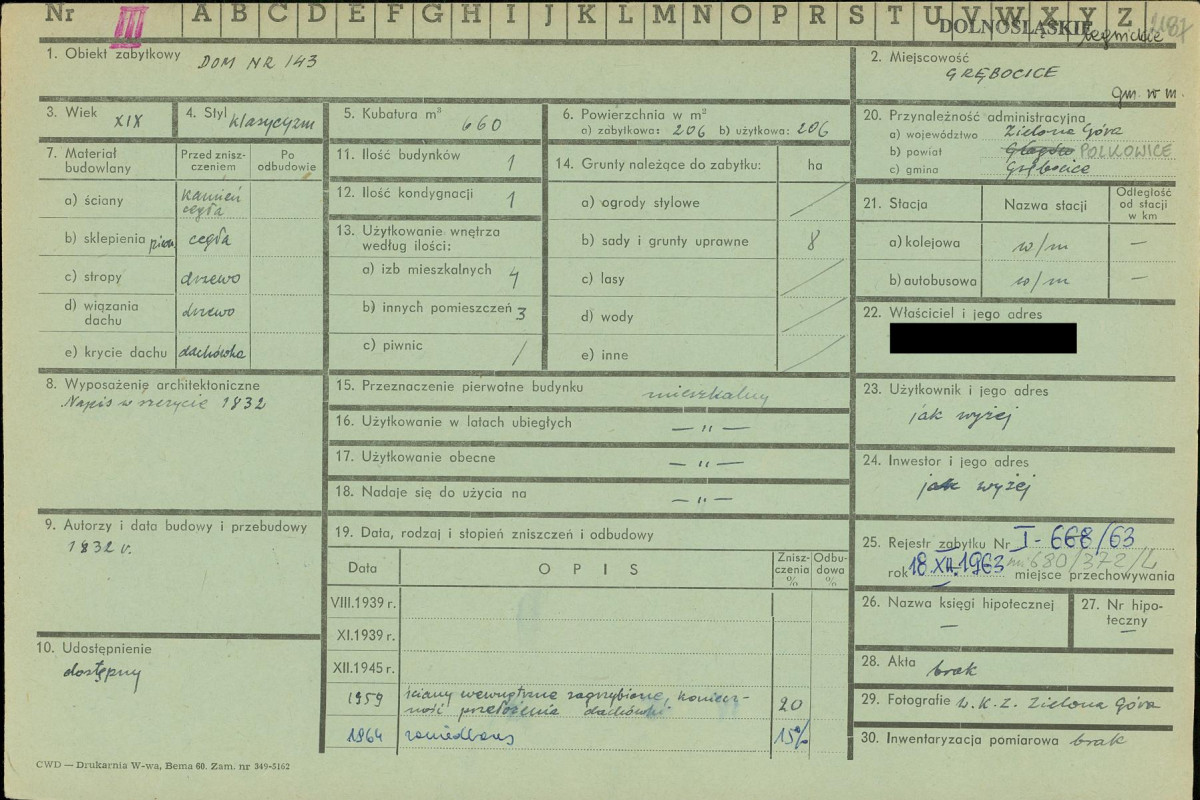 Nr III A B C D E F G H I J K L M N O P R S T U V W X Y Z
DOLNOŚLĄSKIE
legnickie
1. Obiekt zabytkowy DOM NR 143
2. Miejscowość
GRĘBOCICE
gm. w m.
3. Wiek XIX
4. Styl klasycyzm
5. Kubatura m³ 660
6. Powierzchnia w m²
a) zabytkowa: 206 b) użytkowa: 206
20. Przynależność administracyjna
a) województwo Zielona Góra
b) powiat Głogów POLKOWICE
c) gmina Grębocice
7. Materiał budowlany
Przed znisz-
czeniem
Po
odbudowie
a) ściany kamień
cegła
b) sklepienia piwn. cegła
c) stropy drzewo
d) wiązania
dachu drzewo
e) krycie dachu dachówka
11. Ilość budynków 1
12. Ilość kondygnacji 1
13. Użytkowanie wnętrza
według ilości:
a) izb mieszkalnych 4
b) innych pomieszczeń 3
c) piwnic /
14. Grunty należące do zabytku: ha
a) ogrody stylowe
b) sady i grunty uprawne 8
c) lasy
d) wody
e) inne
21. Stacja Nazwa stacji
Odległość
od stacji
w km
a) kolejowa w/m —
b) autobusowa w/m —
22. Właściciel i jego adres
8. Wyposażenie architektoniczne
Napis w szczycie 1832
15. Przeznaczenie pierwotne budynku mieszkalny
16. Użytkowanie w latach ubiegłych — " —
17. Użytkowanie obecne — " —
18. Nadaje się do użycia na — " —
23. Użytkownik i jego adres
jak wyżej
24. Inwestor i jego adres
jak wyżej
9. Autorzy i data budowy i przebudowy
1832 r.
19. Data, rodzaj i stopień zniszczeń i odbudowy
Data OPIS
Znisz-
czenia
%
Odbu-
dowa
%
VIII.1939 r.
XI.1939 r.
XII.1945 r.
1959 ściany wewnętrzne zagrzybione, koniecz-
ność przełożenia dachówki 20
1964 zaniedbany 15%
25. Rejestr zabytku Nr I-668/63
rok 18 XII.1963 nr 680/372/L miejsce przechowywania
26. Nazwa księgi hipotecznej
—
27. Nr hipo-
teczny
—
10. Udostępnienie
dostępny
28. Akta brak
29. Fotografie W.K.Z. Zielona Góra
30. Inwentaryzacja pomiarowa brak
CWD — Drukarnia W-wa, Bema 60. Zam. nr 349-5162